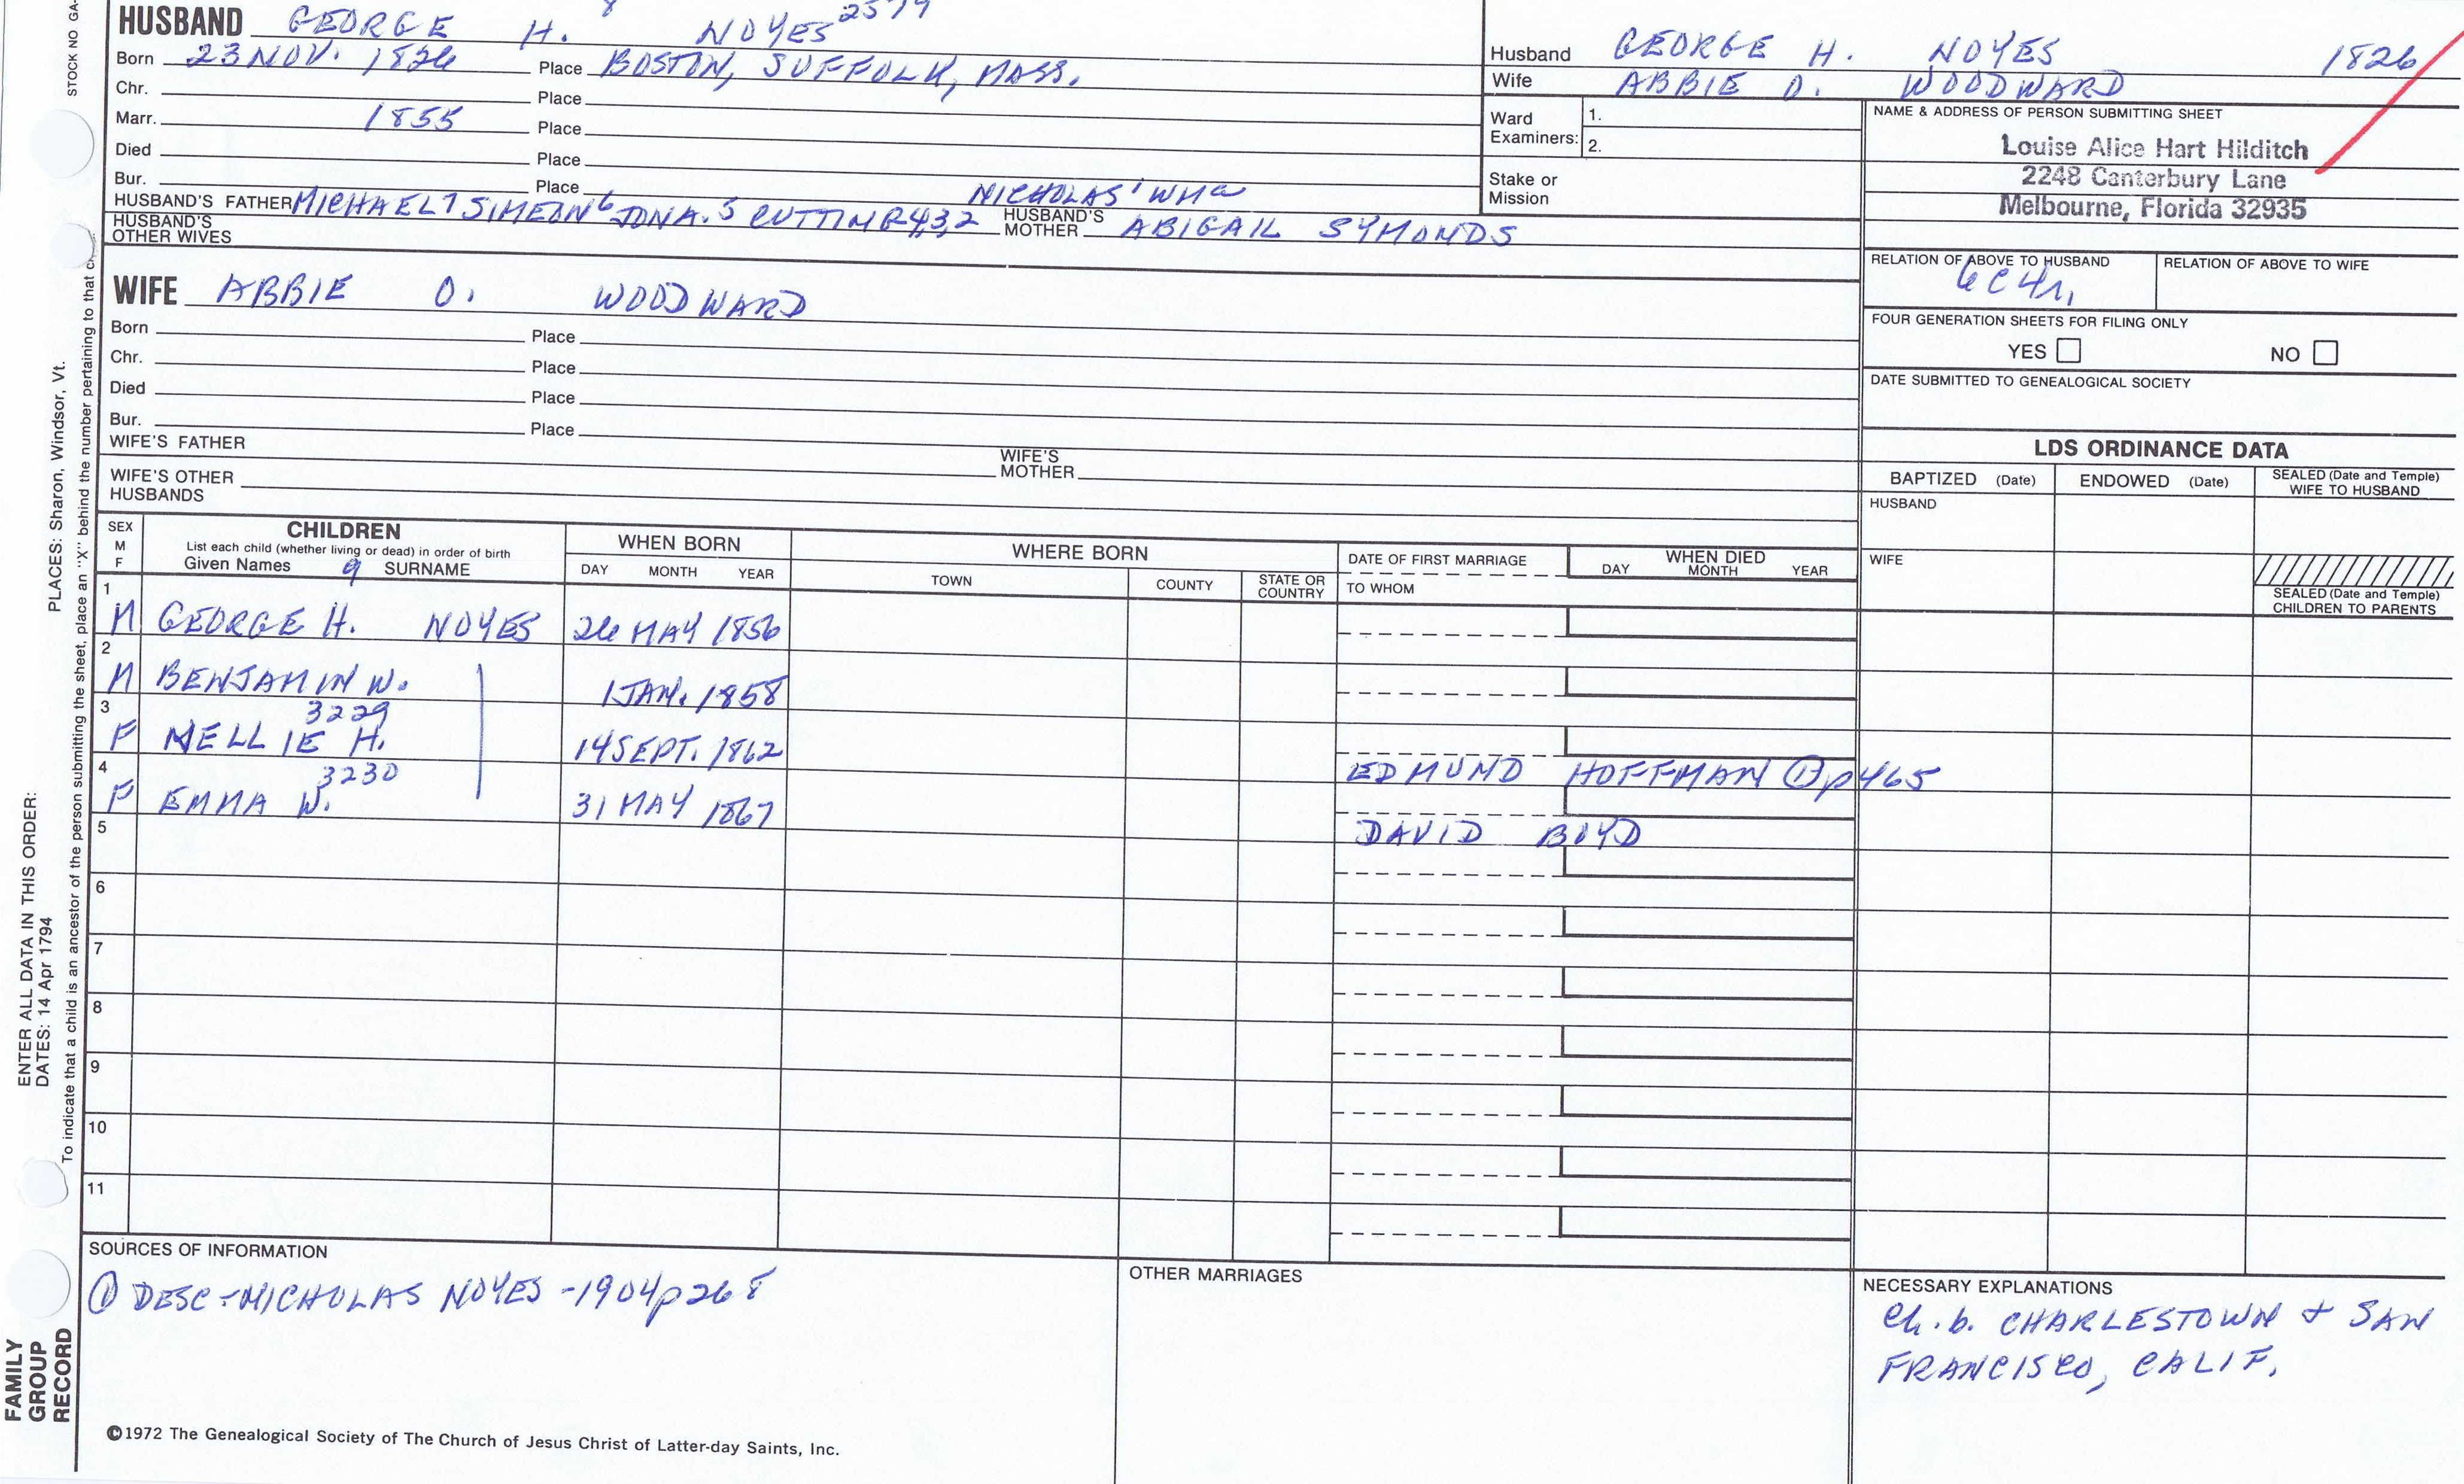 STOCK NO GA-
HUSBAND GEORGE H. 8 NOYES 2579
Born 23 NOV. 1826 Place BOSTON, SUFFOLK, MASS.
Chr. Place
Marr. 1855 Place
Died Place
Bur. Place
NICHOLAS 1 WM
HUSBAND'S FATHER MICHAEL 7 SIMEON 6 JONA. 5 CUTTING 4,3,2 HUSBAND'S MOTHER ABIGAIL SYMONDS
HUSBAND'S OTHER WIVES
WIFE ABBIE O. WOODWARD
Born Place
Chr. Place
Died Place
Bur. Place
WIFE'S FATHER WIFE'S MOTHER
WIFE'S OTHER HUSBANDS
Husband GEORGE H. NOYES 1826
Wife ABBIE O. WOODWARD
Ward Examiners: 1.
2.
Stake or Mission
NAME & ADDRESS OF PERSON SUBMITTING SHEET
Louise Alice Hart Hilditch
2248 Canterbury Lane
Melbourne, Florida 32935
RELATION OF ABOVE TO HUSBAND RELATION OF ABOVE TO WIFE
6C4r,
FOUR GENERATION SHEETS FOR FILING ONLY
YES NO
DATE SUBMITTED TO GENEALOGICAL SOCIETY
LDS ORDINANCE DATA
BAPTIZED (Date) ENDOWED (Date) SEALED (Date and Temple) WIFE TO HUSBAND
HUSBAND
WIFE
SEALED (Date and Temple) CHILDREN TO PARENTS
SEX M F CHILDREN WHEN BORN WHERE BORN DATE OF FIRST MARRIAGE WHEN DIED
List each child (whether living or dead) in order of birth
Given Names 9 SURNAME DAY MONTH YEAR TOWN COUNTY STATE OR COUNTRY TO WHOM DAY MONTH YEAR
1 M GEORGE H. NOYES 26 MAY 1856
2 M BENJAMIN W. 1 JAN. 1858
3229
3 F NELLIE H. 14 SEPT. 1862 EDMUND HOFFMAN ① p 465
3230
4 F EMMA W. 31 MAY 1867 DAVID BOYD
5
6
7
8
9
10
11
SOURCES OF INFORMATION
① DESC - NICHOLAS NOYES - 1904 p 268
OTHER MARRIAGES
NECESSARY EXPLANATIONS
Ch. b. CHARLESTOWN + SAN
FRANCISCO, CALIF.
©1972 The Genealogical Society of The Church of Jesus Christ of Latter-day Saints, Inc.
FAMILY
GROUP
RECORD
ENTER ALL DATA IN THIS ORDER:
DATES: 14 Apr 1794
PLACES: Sharon, Windsor, Vt.
To indicate that a child is an ancestor of the person submitting the sheet, place an "X" behind the number pertaining to that